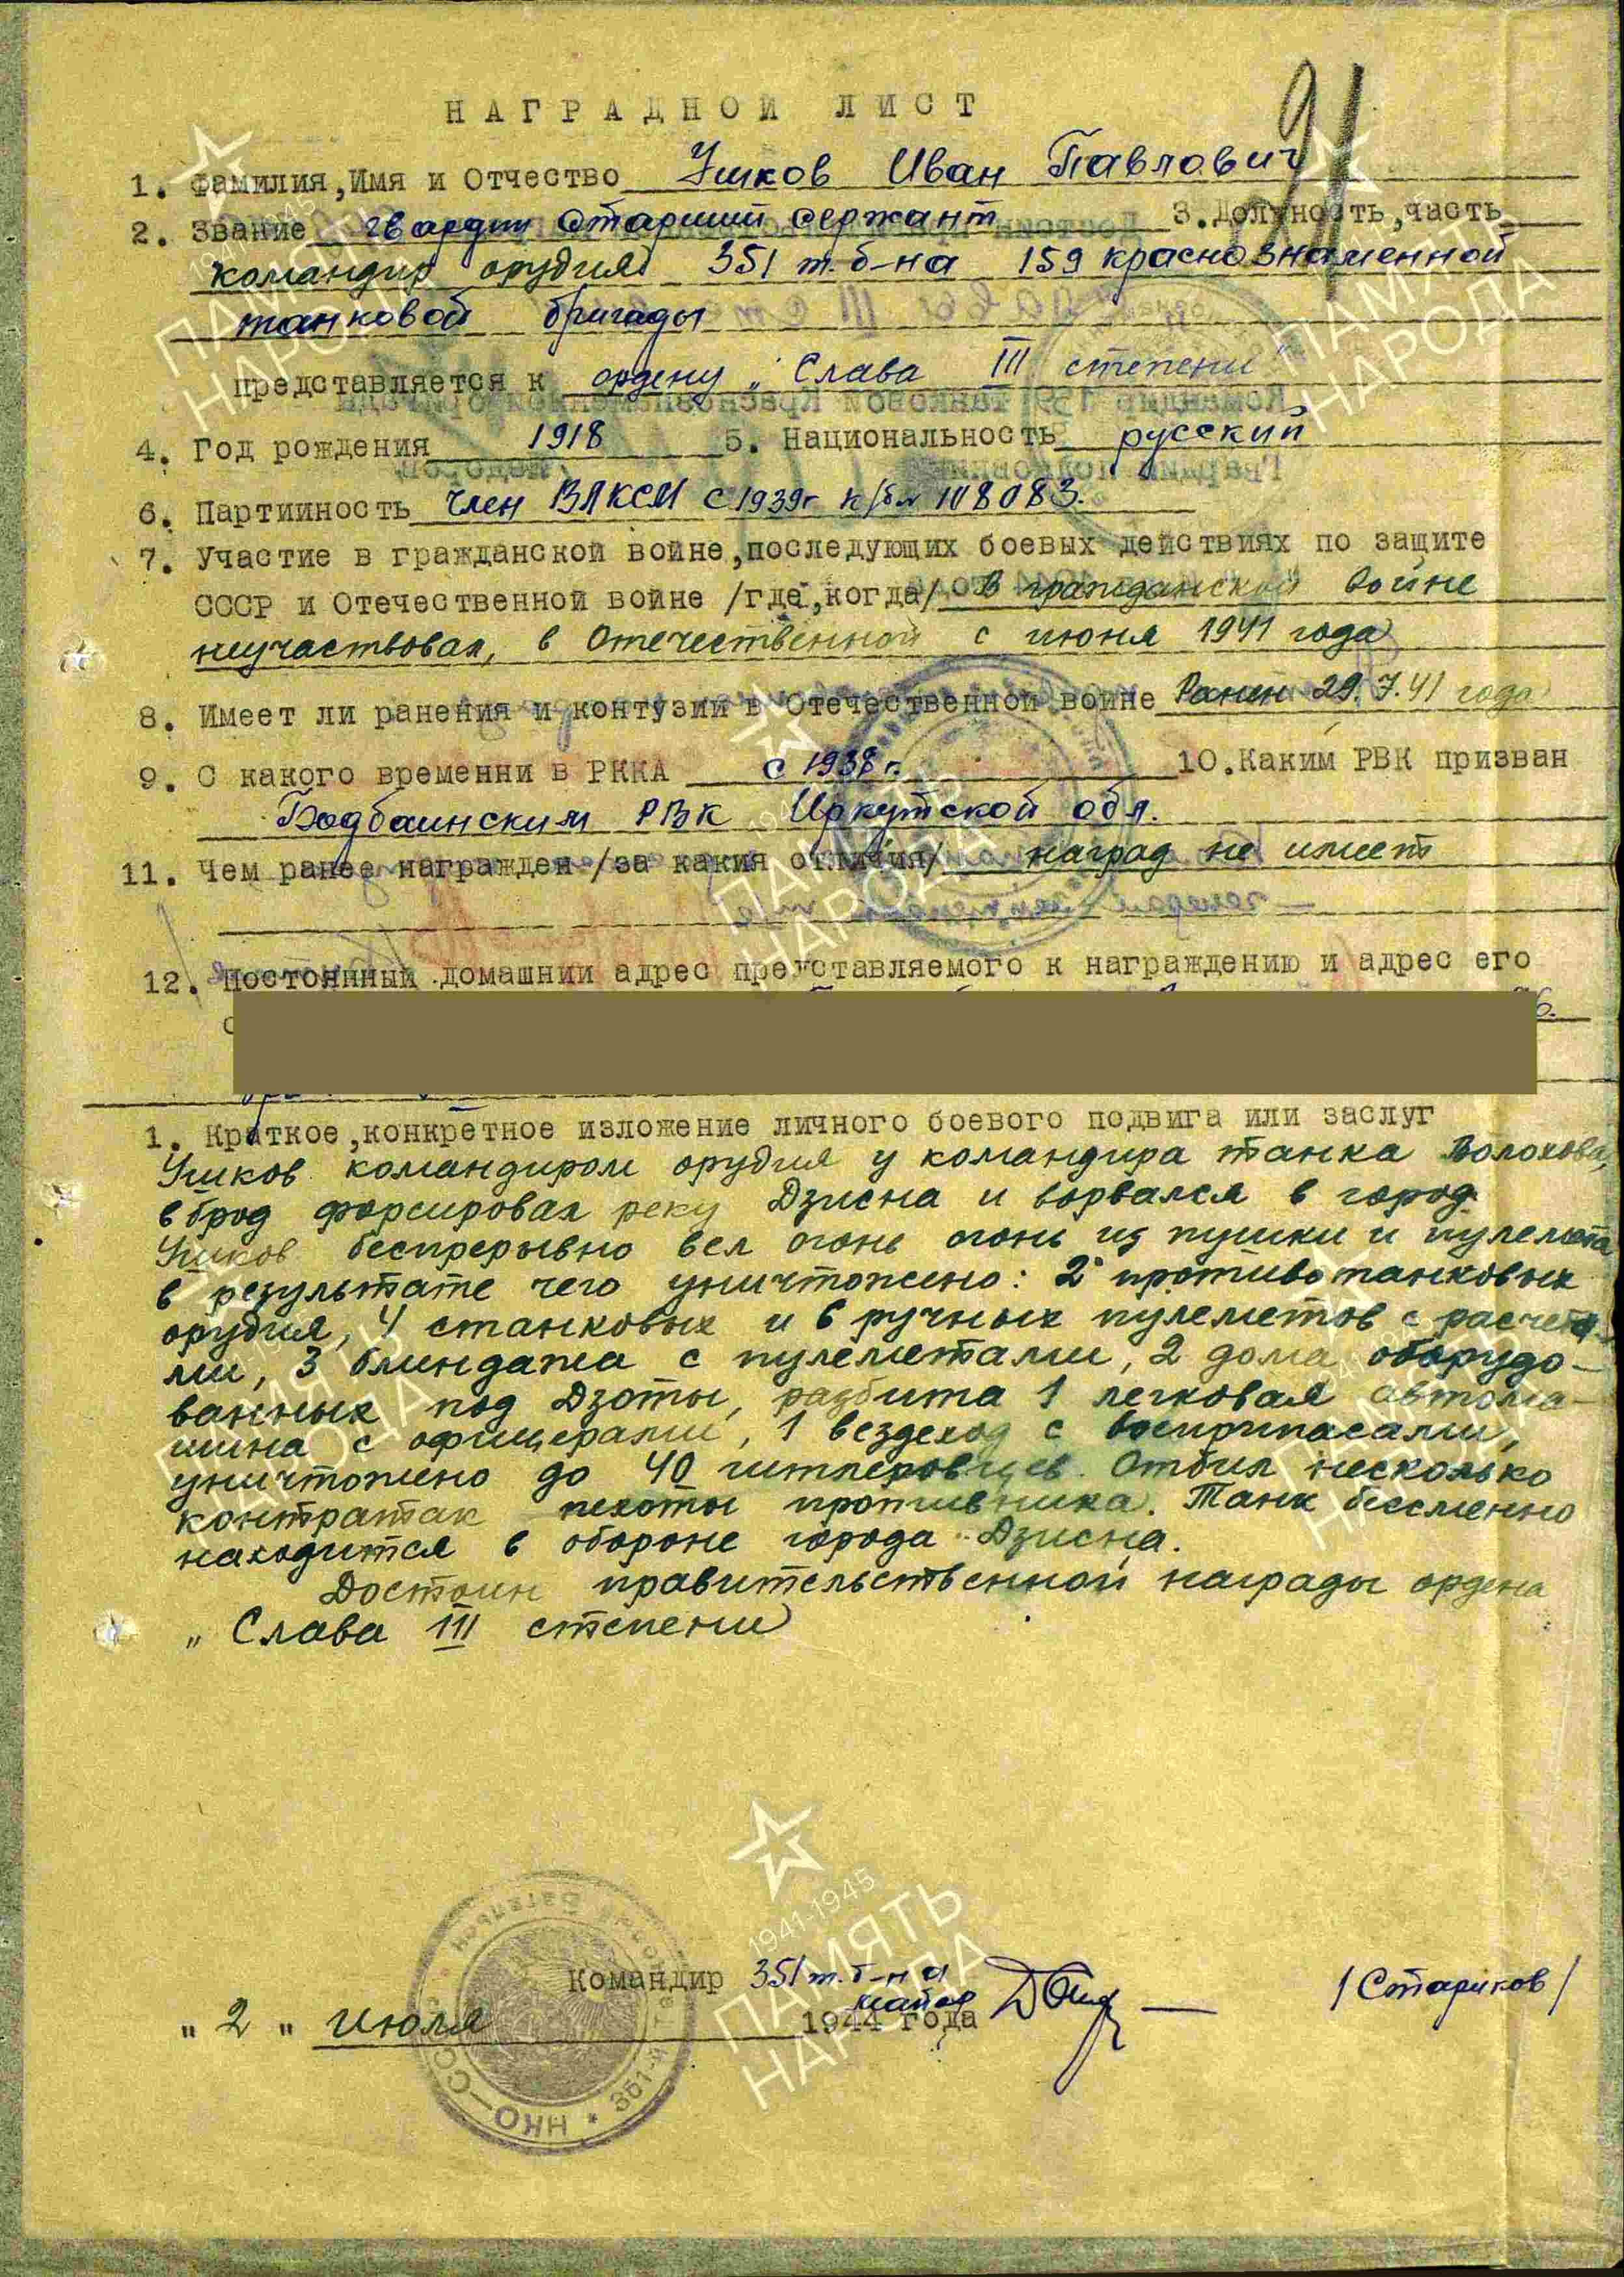 91
НАГРАДНОЙ ЛИСТ
1. Фамилия, Имя и Отчество Ушков Иван Павлович
2. Звание гвардии старший сержант 3. Должность, часть
командир орудия 351 т.б-на 159 краснознаменной
танковой бригады
представляется к ордену „Слава III степени"
4. Год рождения 1918 5. Национальность русский
6. Партийность член ВЛКСМ с 1939г к/б№
7. Участие в гражданской войне, последующих боевых действиях по защите
СССР и Отечественной войне /где, когда/ В гражданской войне
неучаствовал, в Отечественной с июня 1941 года
8. Имеет ли ранения и контузии в Отечественной войне Ранен 29.7.41 года
9. С какого временни в РККА с 1938 г. 10. Каким РВК призван
Бодбаинским РВК Иркутской обл.
11. Чем ранее награжден /за какия отличия/ наград не имеет
12. Постоянный домашний адрес представляемого к награждению и адрес его
1. Краткое, конкретное изложение личного боевого подвига или заслуг
Ушков командиром орудия у командира танка Волохова,
в брод форсировал реку Дзисна и ворвался в город.
Ушков беспрерывно вел огонь огонь из пушки и пулемета
в результате чего уничтожено: 2 противотанковых
орудия, 4 станковых и 6 ручных пулеметов с расчета-
ми, 3 блиндажа с пулеметами, 2 дома оборудо-
ванных под Дзоты, разбита 1 легковая автома-
шина с офицерами, 1 вездеход с боеприпасами,
уничтожено до 40 гитлеровцев. Отбил несколько
контратак пехоты противника. Танк бессменно
находится в обороне города Дзисна.
Достоин правительственной награды ордена
„Слава III степени
Командир 351 т.б-на
майор /Стариков/
„2" июля 1944 года
НКО-СССР * 351-й
1941-1945
ПАМЯТЬ
НАРОДА